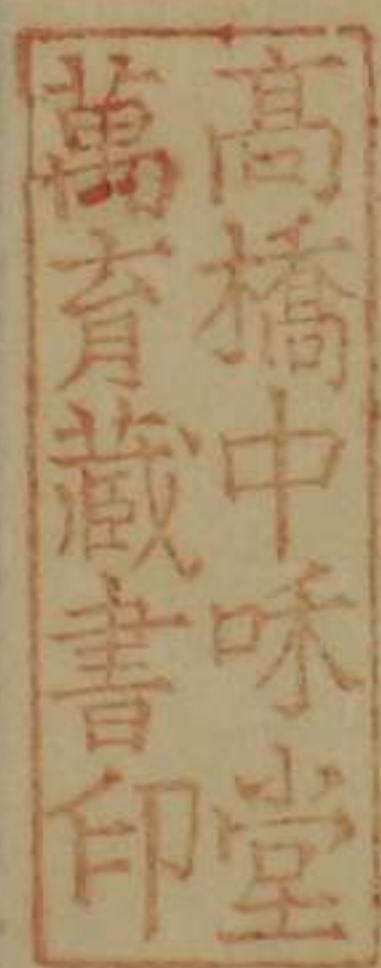 高橋中咊堂
萬育蔵書印